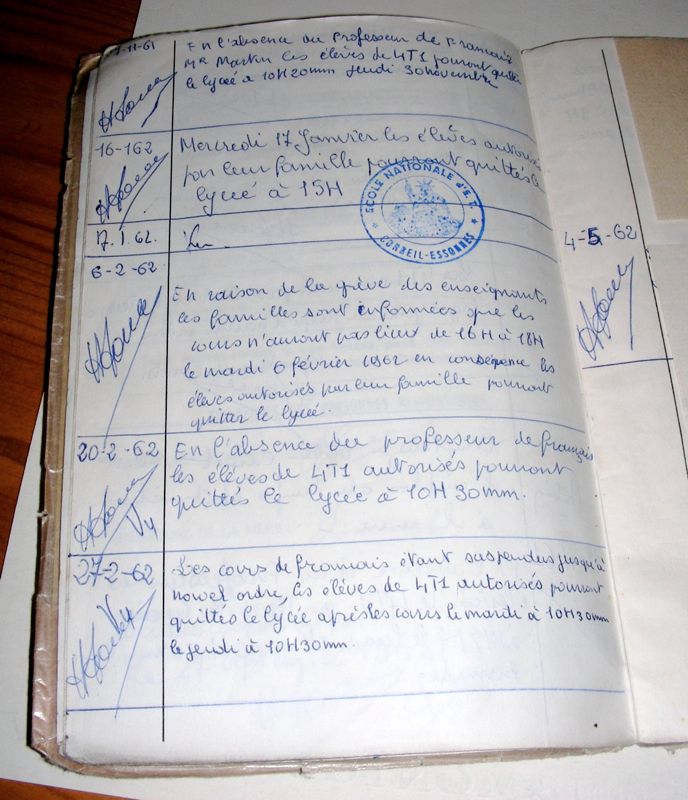 7-11-61
En l'absence du Professeur de Francais
Mr Martin les élèves de 4T1 pourront quitter
le lycée a 10H20mm Jeudi 30 novembre
16-1 62
Mercredi 17 Janvier les élèves autorisés
par leur famille pourront quittés le
lycée à 15H
ECOLE NATIONALE d'E.P.
CORBEIL-ESSONNES
17.1.62.
6-2-62
En raison de la grève des enseignants
les familles sont informées que les
cours n'auront pas lieux de 16H à 18H
le mardi 6 février 1962 en conséquence les
élèves autorisés par leur famille pourront
quitter le lycée.
20-2-62
En l'absence du professeur de français
les élèves de 4T1 autorisés pourront
quittés le lycée à 10H 30mm.
27-2-62
Les cours de francais étant suspendus jusqu'à
nouvel ordre, les élèves de 4T1 autorisés pourront
quittés le lycée après les cours le mardi à 10H30mm
le jeudi à 10H30mm.
4-5-62